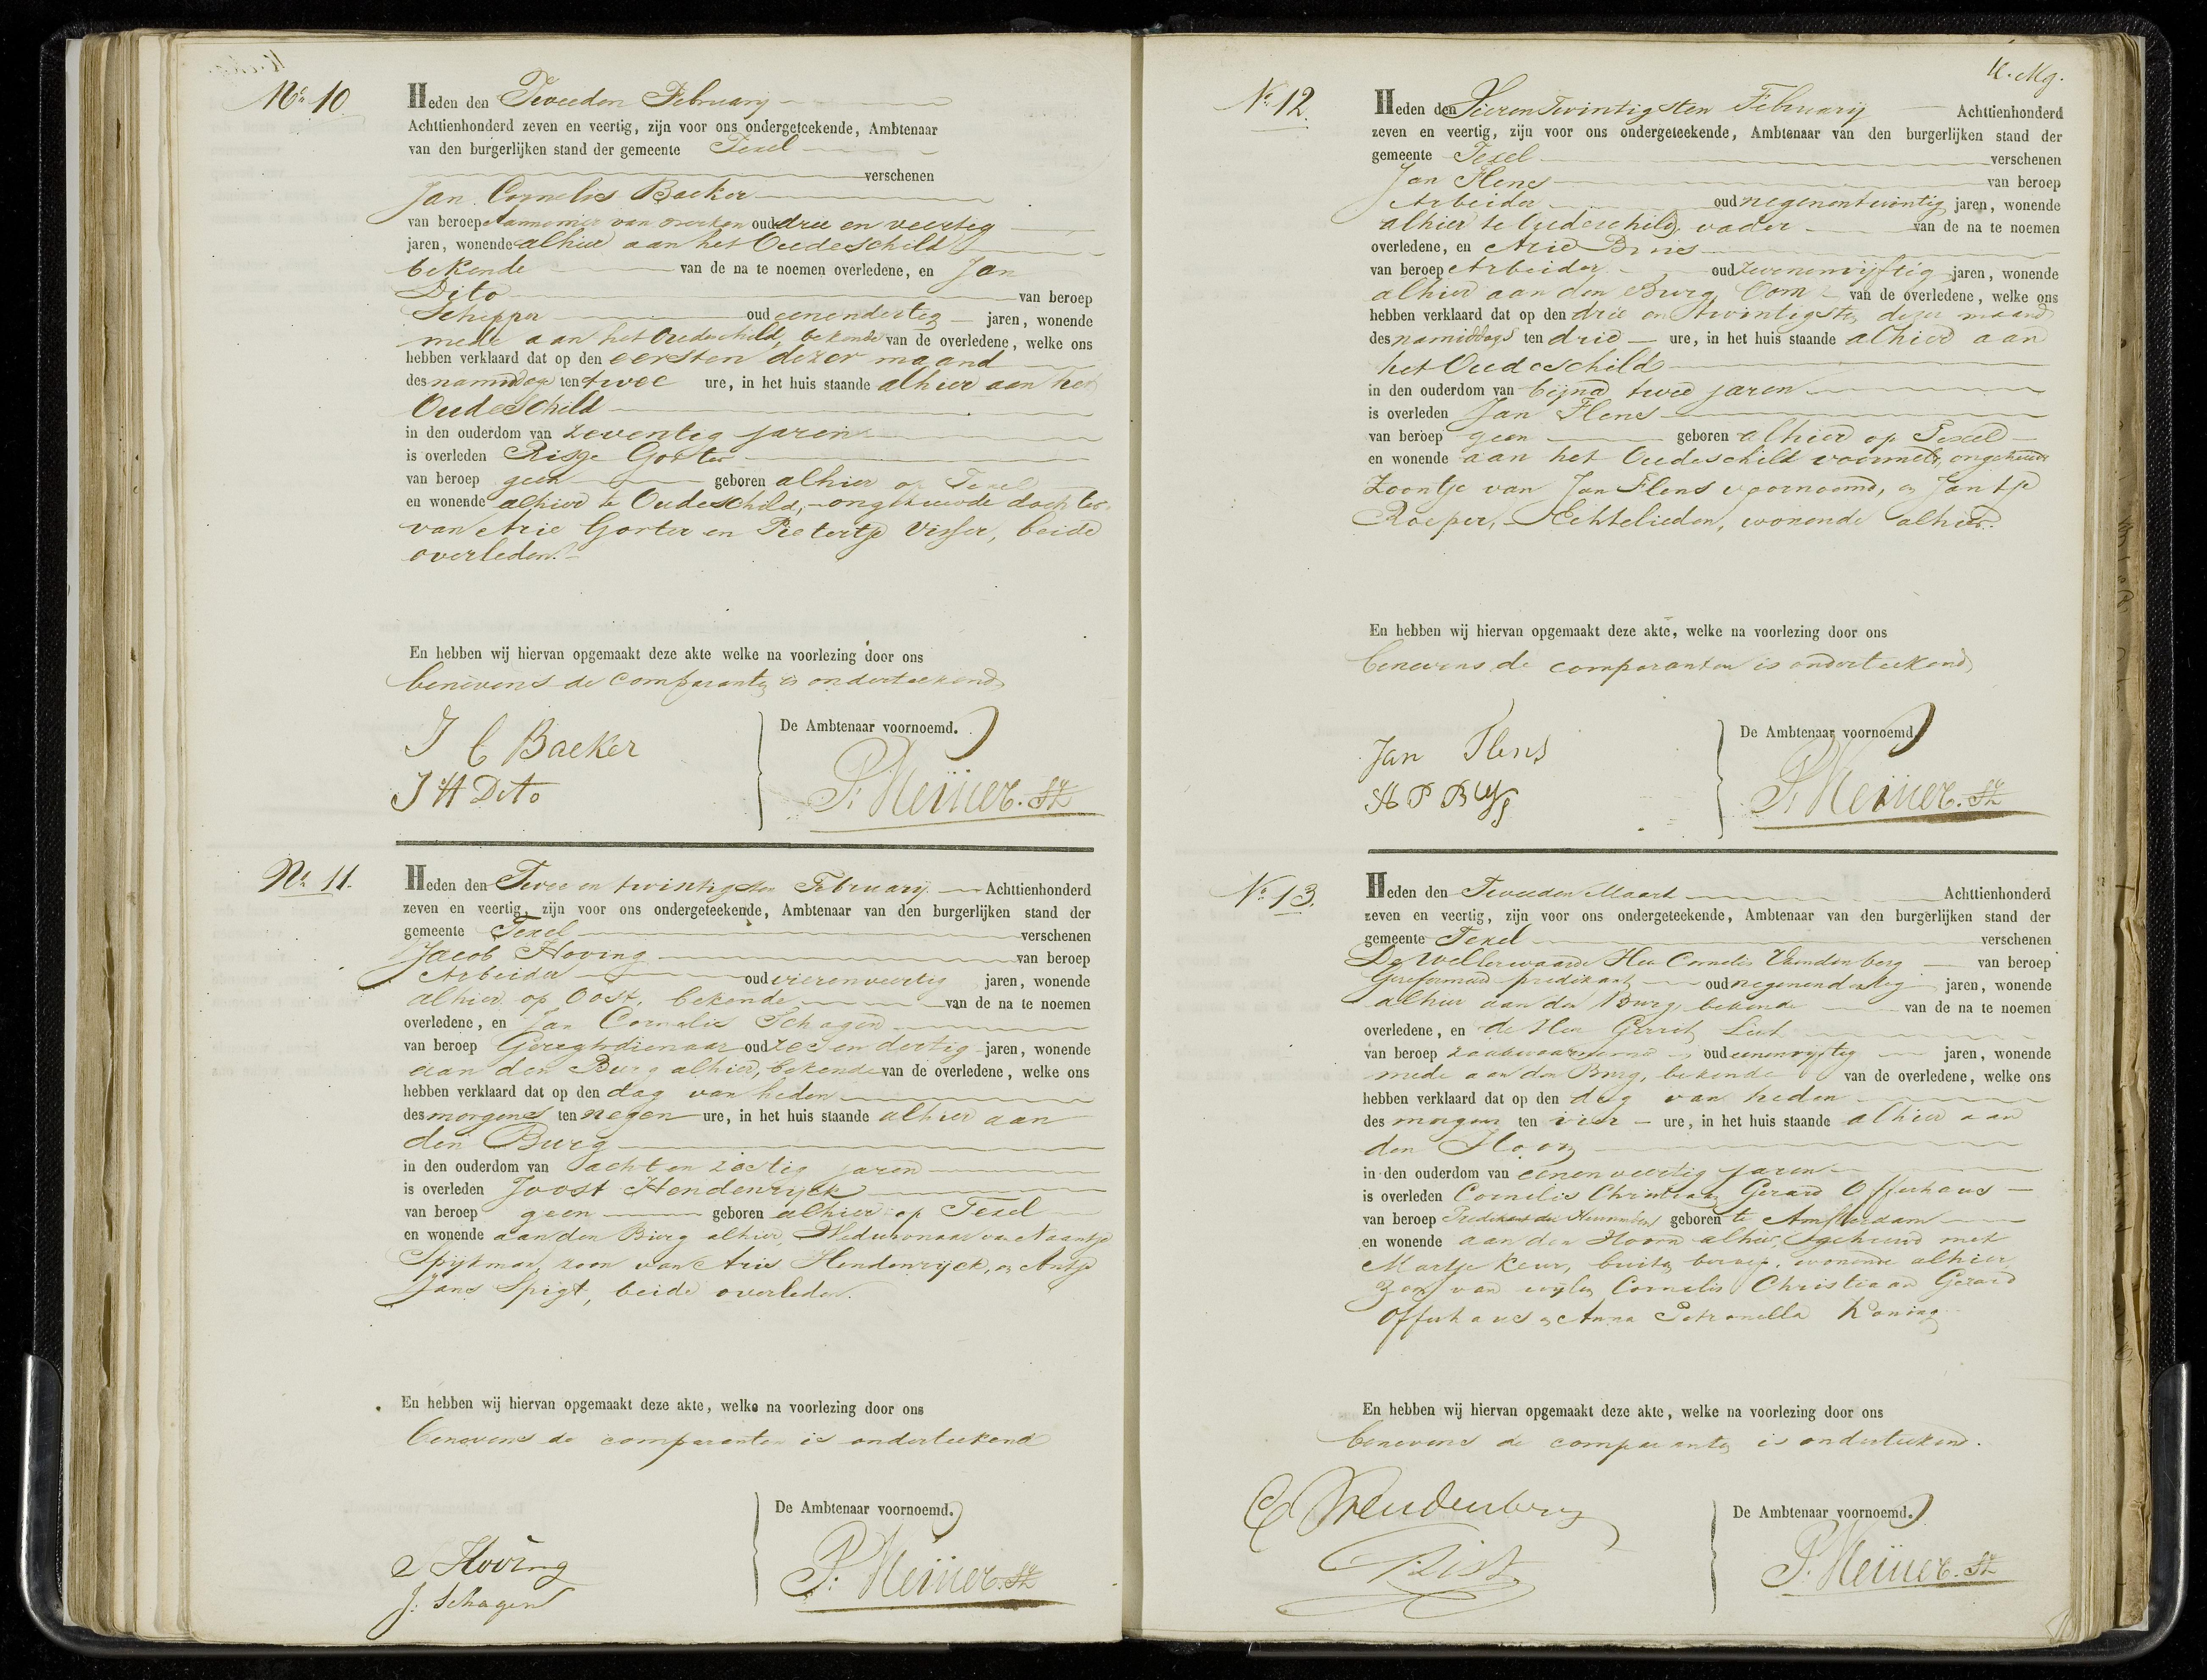 No. 10
Heden den Tweeden February
Achttienhonderd zeven en veertig, zijn voor ons ondergeteekende, Ambtenaar
van den burgerlijken stand der gemeente Texel
verschenen
Jan Cornelis Baeker
van beroep Aannemer van werken oud drie en veertig
jaren, wonende alhier aan het Oudeschild
bekende van de na te noemen overledene, en Jan
Dito van beroep
Schipper oud eenendertig jaren, wonende
mede aan het Oudeschild, bekende van de overledene, welke ons
hebben verklaard dat op den eersten dezer maand
des namiddags ten twee ure, in het huis staande alhier aan het
Oudeschild
in den ouderdom van zeventig jaren
is overleden Gorter
van beroep geen geboren alhier op Texel
en wonende alhier te Oudeschild, ongehuwde dochter
van Arie Gorter en Pietertje Visser, beide
overleden.
En hebben wij hiervan opgemaakt deze akte welke na voorlezing door ons
benevens de comparanten is onderteekend
J C Baeker
J H Dito
De Ambtenaar voornoemd.
P. Meijjer. SZ
No. 11.
Heden den Twee en twintigsten February Achttienhonderd
zeven en veertig, zijn voor ons ondergeteekende, Ambtenaar van den burgerlijken stand der
gemeente Texel verschenen
Jacob Hoving van beroep
Arbeider oud vierenveertig jaren, wonende
alhier op Oost, bekende van de na te noemen
overledene, en Jan Cornelis Schagen
van beroep Geregtsdienaar oud zesendertig jaren, wonende
aan den Burg alhier, bekende van de overledene, welke ons
hebben verklaard dat op den dag van heden
des morgens ten negen ure, in het huis staande alhier aan
den Burg
in den ouderdom van acht en zestig jaren
is overleden Joost Hendenrijck
van beroep geen geboren alhier op Texel
en wonende aan den Burg alhier, Weduwnaar van Naantje
Spijkman, zoon van Arie Hendenrijck, en Antje
Jans Spigt, beide overleden.
En hebben wij hiervan opgemaakt deze akte, welke na voorlezing door ons
benevens de comparanten is onderteekend
J Hoving
J. Schagen
De Ambtenaar voornoemd.
P. Meijjer. SZ
No. 12.
Heden den Vierentwintigsten February Achttienhonderd
zeven en veertig, zijn voor ons ondergeteekende, Ambtenaar van den burgerlijken stand der
gemeente Texel verschenen
Jan Flens van beroep
Arbeider oud negenentwintig jaren, wonende
alhier te Oudeschild, vader van de na te noemen
overledene, en Arie
van beroep Arbeider oud zevenenvijftig jaren, wonende
alhier aan den Burg, Oom van de overledene, welke ons
hebben verklaard dat op den drie en twintigsten dezer maand
des namiddags ten drie ure, in het huis staande alhier aan
het Oudeschild
in den ouderdom van bijna twee jaren
is overleden Jan Flens
van beroep geen geboren alhier op Texel
en wonende aan het Oudeschild voormeld, ongehuwd
Zoontje van Jan Flens voornoemd, en Jantje
Roeper, Echtelieden, wonende alhier.
En hebben wij hiervan opgemaakt deze akte, welke na voorlezing door ons
benevens de comparanten is onderteekend
Jan Flens
A P Buys
De Ambtenaar voornoemd.
P. Meijjer. SZ
No. 13.
Heden den Tweeden Maart Achttienhonderd
zeven en veertig, zijn voor ons ondergeteekende, Ambtenaar van den burgerlijken stand der
gemeente Texel verschenen
De Weleerwaarde Heer Cornelis van beroep
Gereformeerd predikant oud negenendertig jaren, wonende
alhier aan den Burg, bekende van de na te noemen
overledene, en de Heer Gerrit List
van beroep zaakwaarnemer oud eenenvijftig jaren, wonende
mede aan den Burg, bekende van de overledene, welke ons
hebben verklaard dat op den dag van heden
des morgens ten vier ure, in het huis staande alhier aan
den Hoorn
in den ouderdom van eenenveertig jaren
is overleden Cornelis Christiaan Gerard Offerhaus
van beroep Predikant der Hervormden geboren te Amsterdam
en wonende aan den Hoorn alhier, gehuwd met
Martje Keur, buiten beroep, wonende alhier,
Zoon van wijlen Cornelis Christiaan Gerard
Offerhaus en Anna Petronella Koning
En hebben wij hiervan opgemaakt deze akte, welke na voorlezing door ons
benevens de comparanten is onderteekend.
List
De Ambtenaar voornoemd.
P. Meijjer. SZ